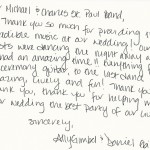 Michael & Charles St. Paul Band,
Thank you so much for providing
incredible music at our wedding! Our
guests were dancing the night away a
had an amazing time!! Everything
ceremony guitar, to the last dance
amazing, lively and fun! Thank you
thank you, thank you for helping m
our wedding the best party of our liv
Sincerely,
Ally Gimbel & Daniel Ba